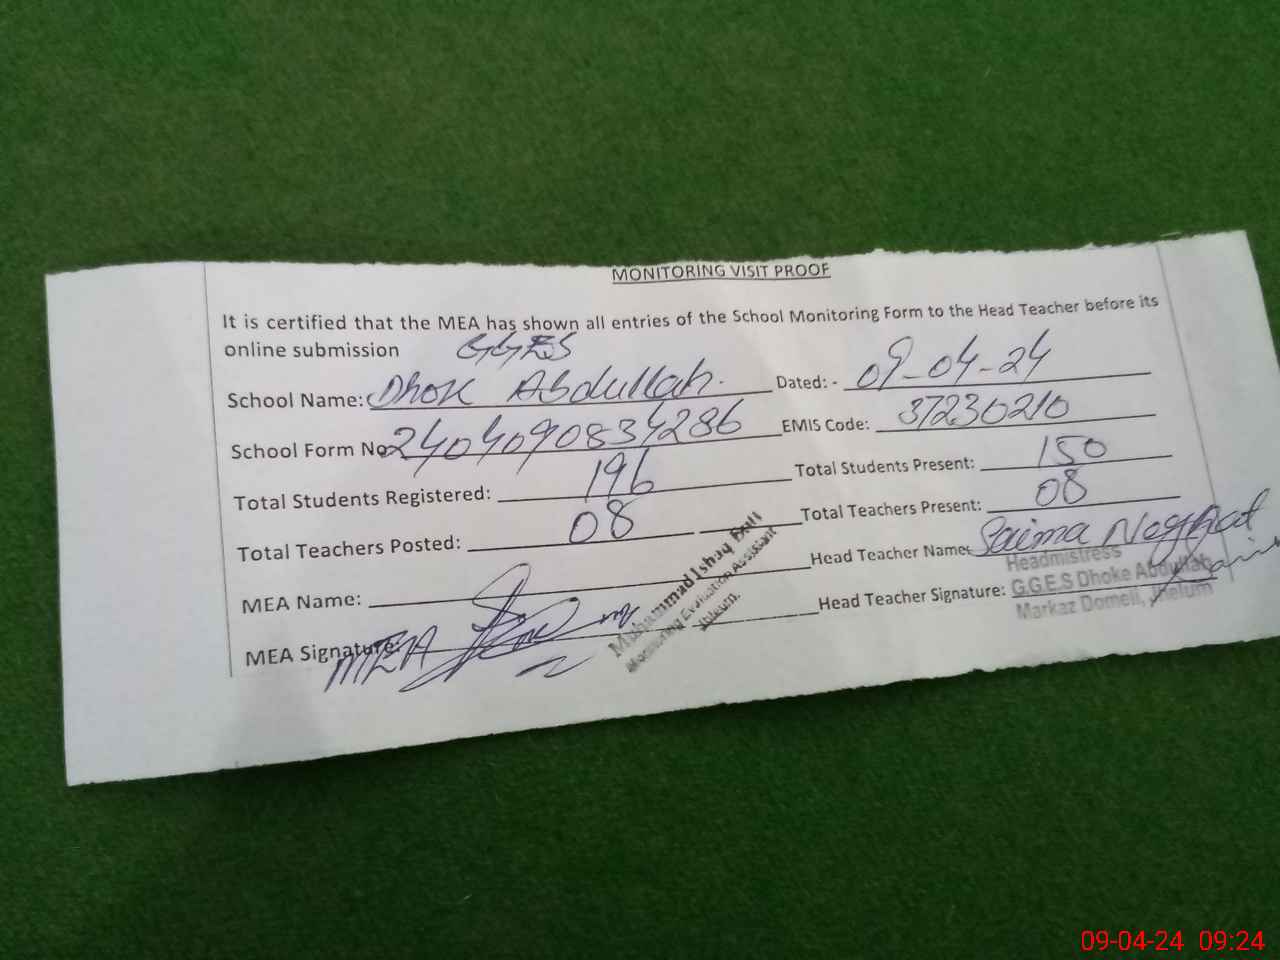 MONITORING VISIT PROOF
It is certified that the MEA has shown all entries of the School Monitoring Form to the Head Teacher before its
online submission GGES
School Name: Dhok Abdullah. Dated: - 09-04-24
School Form No 2404090834286 EMIS Code: 37230210
Total Students Registered: 196 Total Students Present: 150
Total Teachers Posted: 08 Total Teachers Present: 08
MEA Name: Head Teacher Name: Saima
MEA Signature: MEA Head Teacher Signature:
Muhammad Ishaq
Monitoring Evaluation Assistant
Jhleum.
Headmistress
G.G.E.S Dhoke Abdullah
Markaz Domeli, Jhelum
09-04-24 09:24